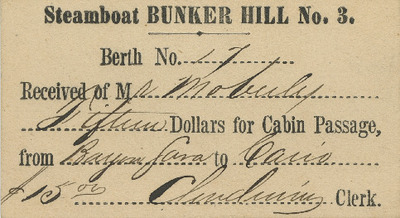 Steamboat BUNKER HILL No. 3.
Berth No. 17
Received of Mr Moberly
Fifteen Dollars for Cabin Passage,
from Bayou Sara to Cairo
$15 00 Clerk.